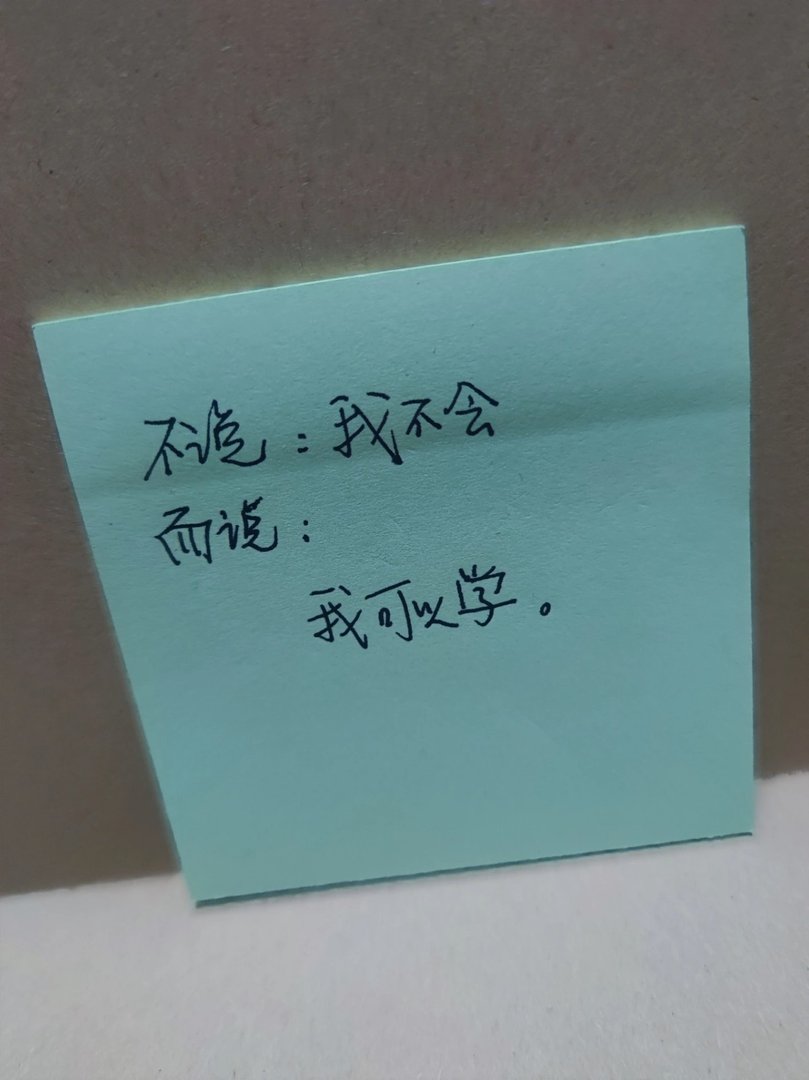 不说：我不会
而说：
我可以学。